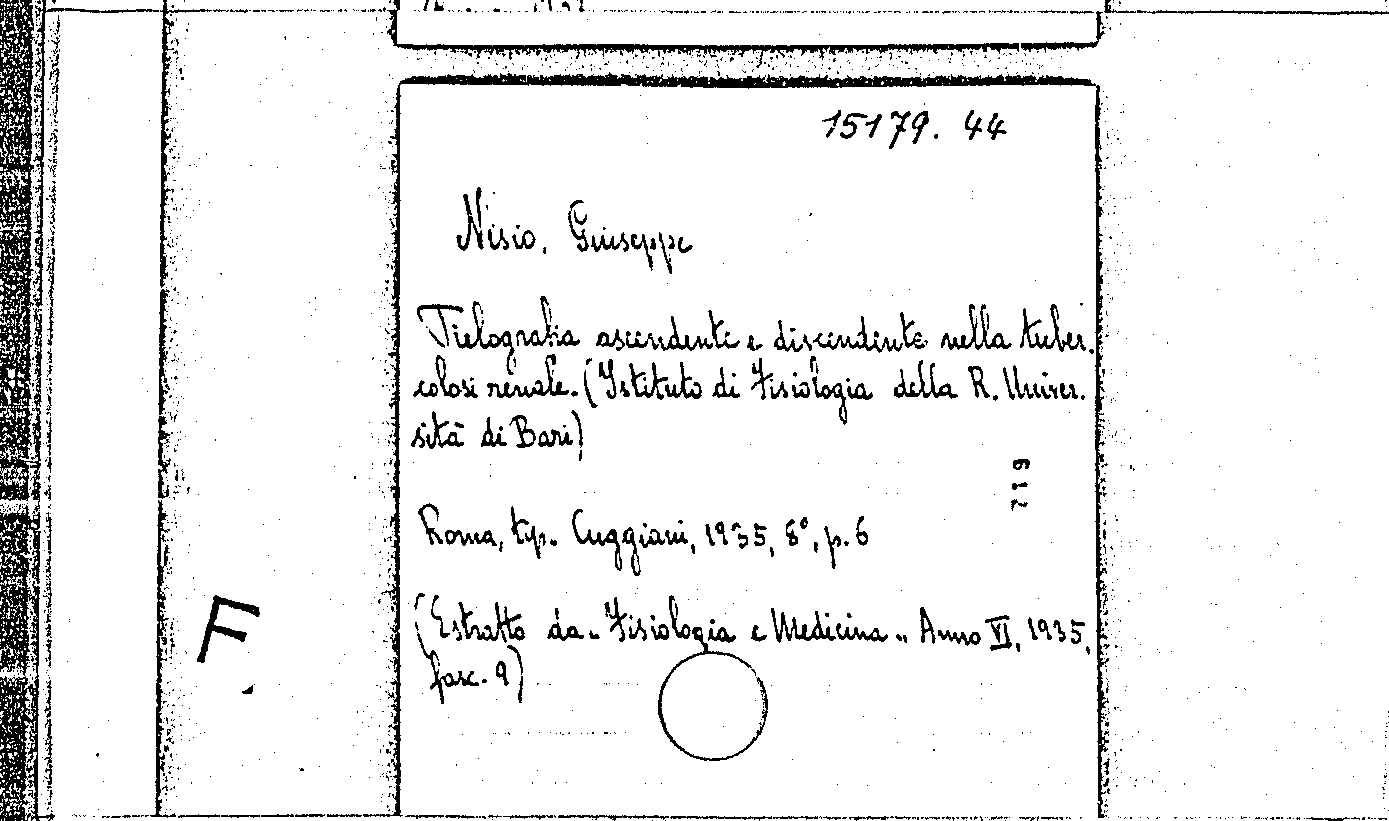 15179. 44
Nisio, Giuseppe
Pielografia ascendente e discendente nella tuber.
colosi renale. (Istituto di Fisiologia della R. Univer.
sità di Bari)
719
Roma, tip. Cuggiani, 1935, 8°, p. 6
F
(Estratto da „ Fisiologia e Medicina „ Anno VI, 1935,
fasc. 9)